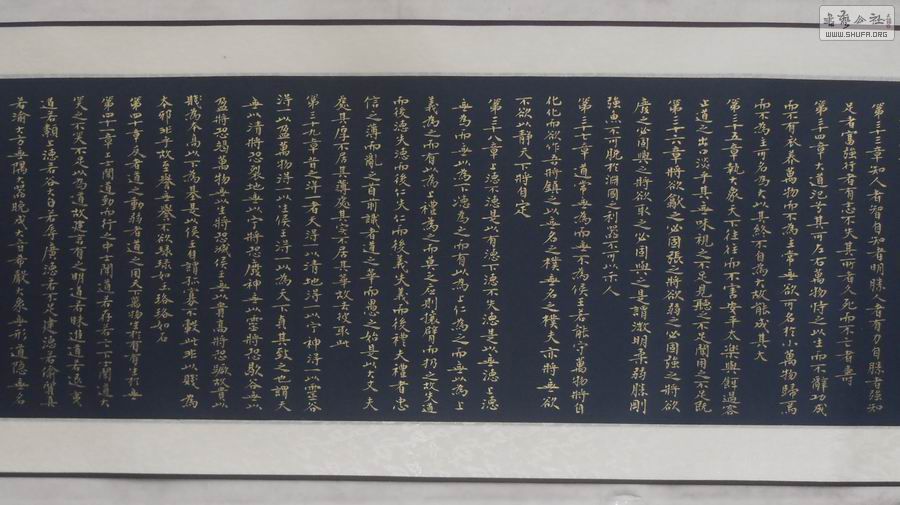 第三十三章知人者智自知者明勝人者有力自勝者強知
足者富強行者有志不失其所者久死而不亡者壽
第三十四章大道氾兮其可左右萬物恃之以生而不辭功成
而不有衣養萬物而不為主常無欲可名於小萬物歸焉
而不為主可名為大以其終不自為大故能成其大
第三十五章執大象天下往往而不害安平太樂與餌過客
止道之出口淡乎其無味視之不足見聽之不足聞用之不足既
第三十六章將欲歙之必固張之將欲弱之必固強之將欲
廢之必固興之將欲取之必固與之是謂微明柔弱勝剛
強魚不可脫於淵國之利器不可以示人
第三十七章道常無為而無不為侯王若能守萬物將自
化化而欲作吾將鎮之以無名之樸無名之樸夫亦將無欲
不欲以靜天下將自定
第三十八章上德不德是以有德下德不失德是以無德上德
無為而無以為下德為之而有以為上仁為之而無以為上
義為之而有以為上禮為之而莫之應則攘臂而扔之故失道
而後德失德而後仁失仁而後義失義而後禮夫禮者忠
信之薄而亂之首前識者道之華而愚之始是以大丈夫
處其厚不居其薄處其實不居其華故去彼取此
第三十九章昔之得一者天得一以清地得一以寧神得一以靈谷
得一以盈萬物得一以侯王得一以為天下貞其致之也謂天
無以清將恐裂地無以寧將恐廢神無以靈將恐歇谷無以
盈將恐竭萬物無以生將恐滅侯王無以貴高將恐蹶故貴以
賤為本高以下為基是以侯王自謂孤寡不穀此非以賤為
本邪非乎故至譽無譽不欲琭琭如玉珞珞如石
第四十章反者道之動弱者道之用天下萬物生於有有生於無
第四十一章上士聞道勤而行之中士聞道若存若亡下士聞道大
笑之不笑不足以為道故建言有之明道若昧進道若退夷
道若纇上德若谷大白若辱廣德若不足建德若偷質真
若渝大方無隅大器晚成大音希聲大象無形道隱無名
书艺公社
WWW.SHUFA.ORG